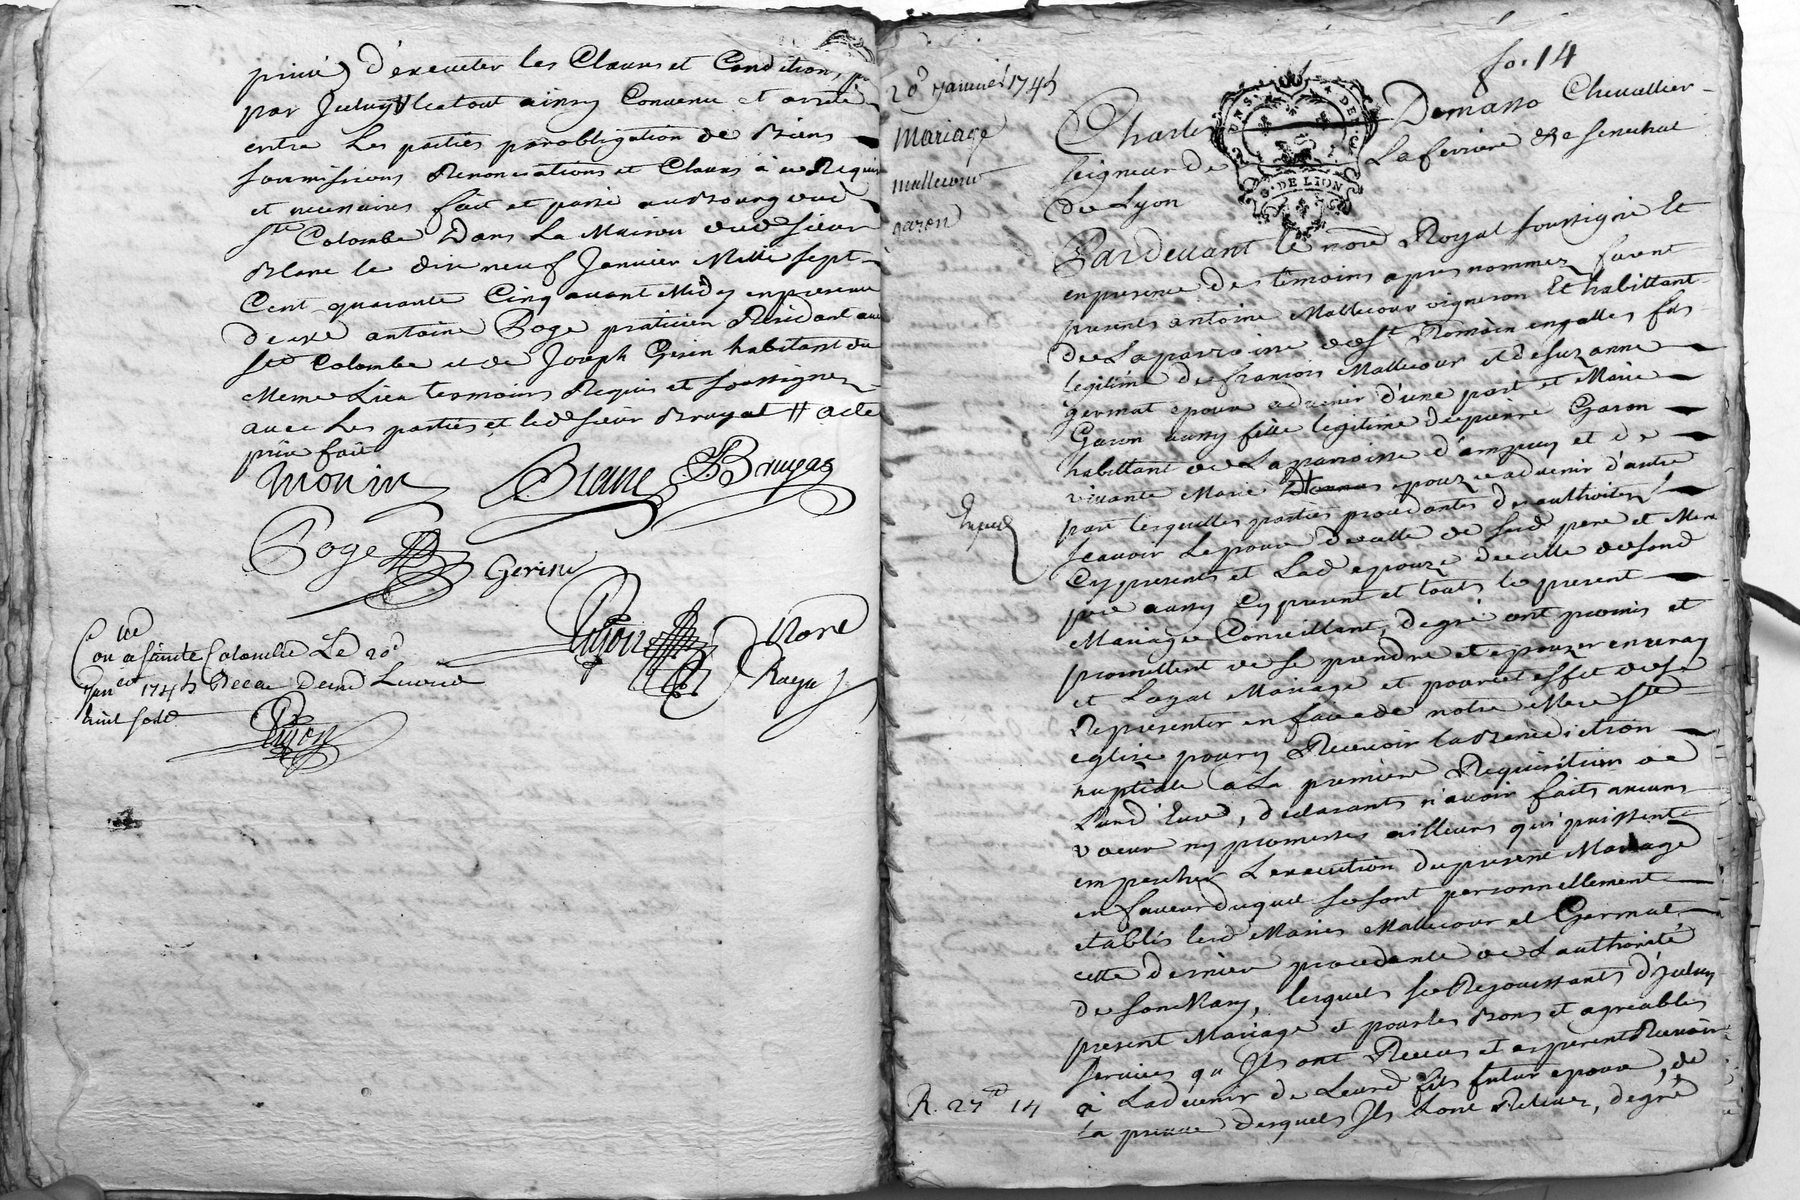 privé d'executer les Clauses et Conditions
par Iceluy le tout ainsy Convenu et arreté
entre Les parties par obligation de Biens
soumissions Renonciations et Clauses à ce Requis
et necessaires fait et passé au Bourg dud
Ste Colombe Dans La Maison dud Sieur
Blanc le dix neuf Janvier Mille sept
Cent quarante Cinq avant Midy en presence
de me antoine Boge praticien Residant aud
Ste Colombe et de Joseph Gerin habitant du
Meme Lieu temoins Requis et soussignez
avec Les parties et led Sieur Bruyas # acte
prix fait
Monin Blanc JBruyas
Boge Gerin
Con a Sainte Colombe Le 20e
Janer 1745 Receu Douze Livres
huit sols
fo. 14
20e Janvier 1745
Mariage
Mallecour
garon
Charles Demasso Chevallier
Seigneur de La ferriere &c Senechal
de Lyon
G. DE LION
Pardevant le nore Royal soussigné Et
en presence des temoins apres nommez furent
presents antoine Mallecour vigneron Et habittant
de La parroisse de St Romain en galles fils
legitime de francois Mallecour et de Suzanne
germat epoux advenir d'une part et Marie
Garon aussy fille legitime de pierre Garon
habittant de La parroisse d'ampuy et de
vivante Marie epouze advenir d'autre
part lesquelles parties procedantes des authoritez
Expedié
scavoir Le epoux de celle de sesd pere et Mere
Cy presents et Lad epouze de celle de sond
pere aussy Cy present et touts le present
Mariage Conseillant, de gré ont promis et
promettent de se prendre et epouzer en vray
et Loyal Mariage et pour cet effet de se
Representer en face de notre Mere Ste
eglise pour y Recevoir la Benediction
nuptiale a La premiere Requisition de
L'un d'Eux, declarants n'avoir faits aucuns
voeux ny promesses ailleurs qui puissent
empescher L'execution du present Mariage
en faveur duquel se sont personnellement
etablis lesd Maries Mallecour et Germat
cette derniere procedante de L'authorité
de son Mary, lesquels se Rejouissants d'Iceluy
present Mariage et pour les Bons et agreables
services qu'Ils ont Receus et esperent Recevoir
à L'advenir de Leurd fils futur epoux, de
la preuve desquels Ils L'ont Relevé, de gré
R. 27 14